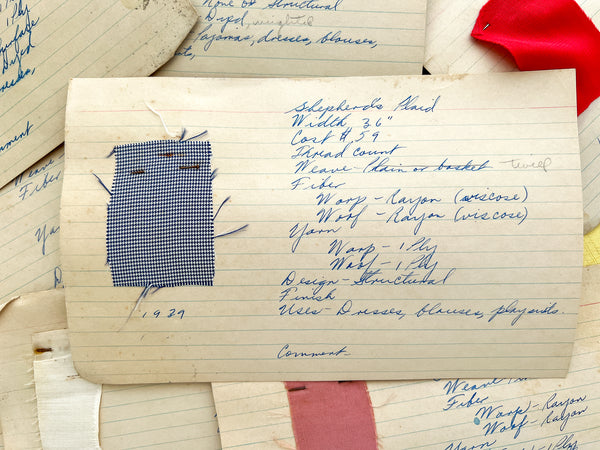 1 Ply
Dyed
None or Structural
Dyed, weighted
Pajamas, dresses, blouses,
Shepherd's Plaid
Width 36"
Cost #,59
Thread count
Weave- Plain or basket twill
Fiber
Warp - Rayon (viscose)
Woof - Rayon (viscose)
Yarn
Warp - 1 Ply
Woof - 1 Ply
Design - Structural
Finish
Uses - Dresses, blouses, playsuits.
Comment-
1939
Weave
Fiber
Weave
Fiber
Warp - Rayon
Woof - Rayon
Yarn